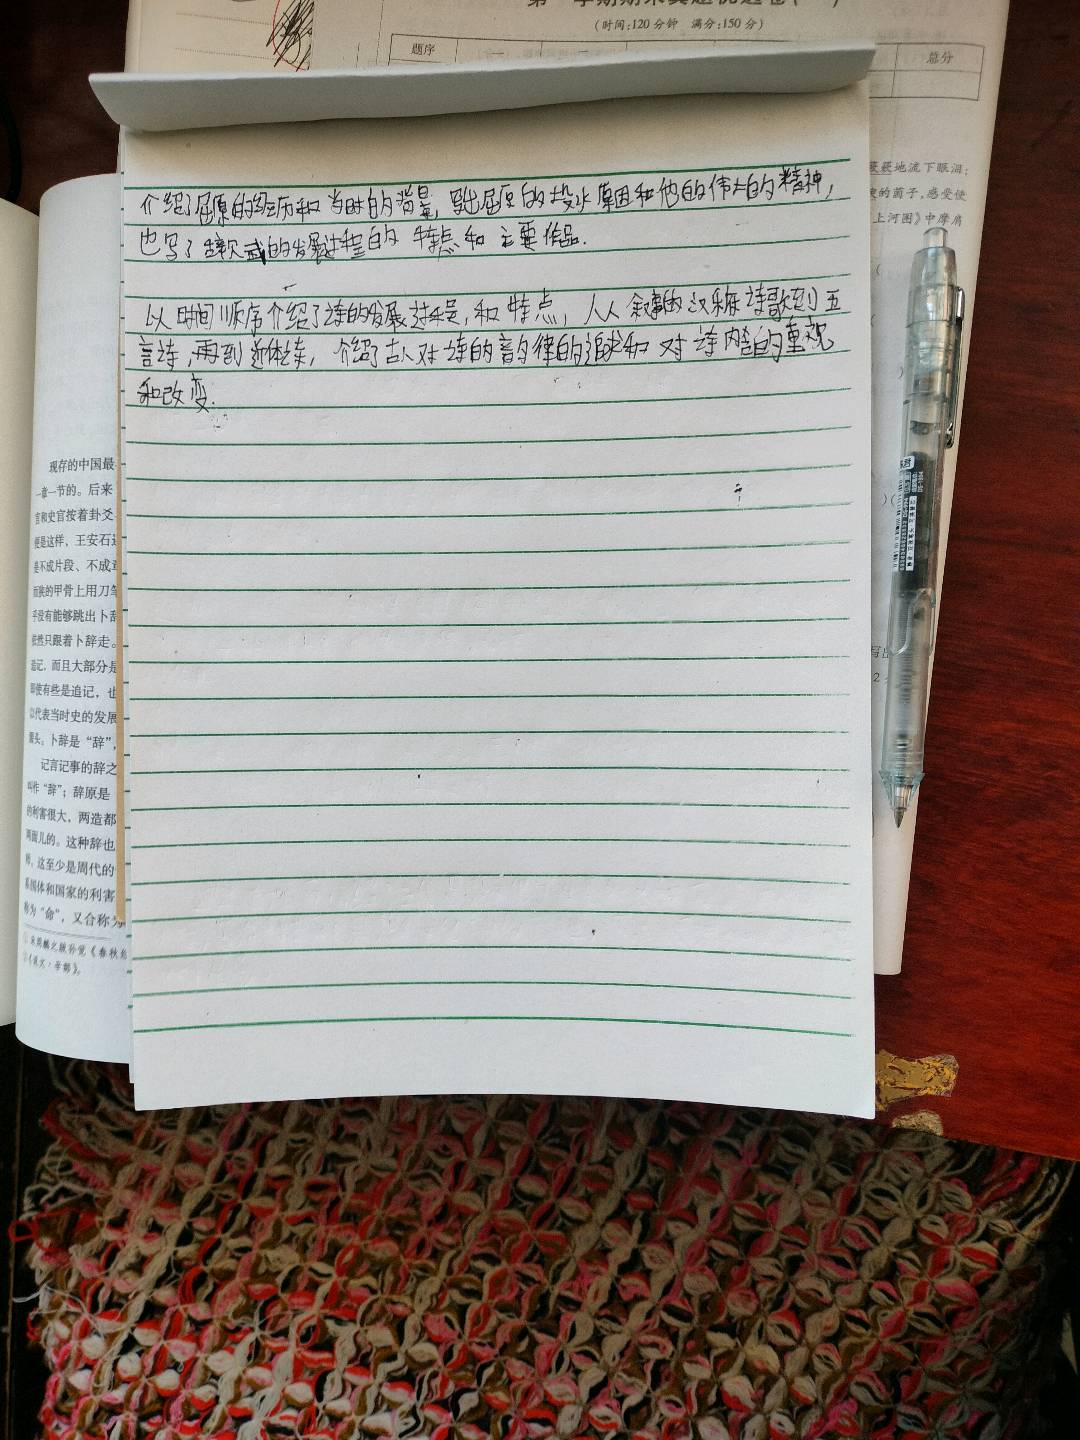 (时间:120分钟 满分:150分)
题序
总分
地流下眼泪;
的菌子,感受使
上河图》中摩肩
介绍了屈原的经历和当时的背景,写出屈原的投水原因和他的伟大的精神,
也写了辞赋的发展过程的特点和主要作品.
以时间顺序介绍了诗的发展过程,和特点,人从叙事的汉乐府诗歌到五
言诗,再到近体诗,介绍了古人对诗的音的律的追求和对诗内容的重视
和改变.
现存的中国最
一章一节的。后来
官和史官按着卦爻
便是这样,王安石
是不成片段、不成
而狭的甲骨上用刀笔
乎没有能够跳出卜辞
依然只跟着卜辞走。
追记,而且大部分是
即使有些是追记,也
以代表当时史的发展
源头。卜辞是“辞”,
记言记事的辞之
叫作“辞”;辞原是
的利害很大,两造都
两面儿的。这种辞也
这至少是周代的
系团体和国家的利害
称为“命”,又合称为
《春秋经
《说文·辛部》。